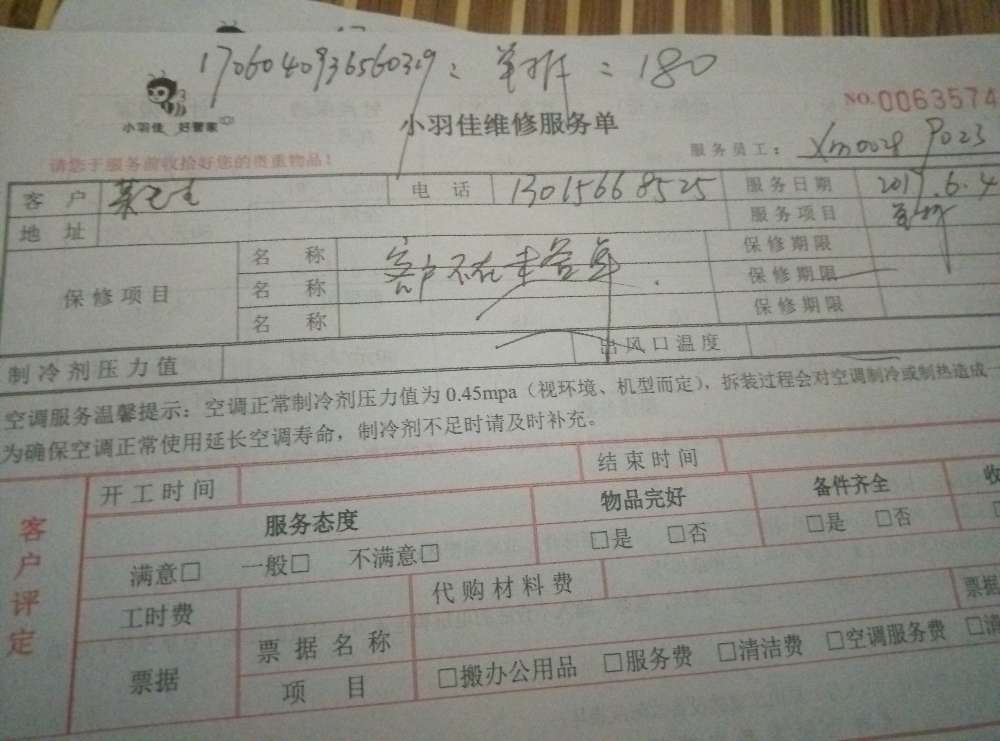 170604093656039: 单拆: 180
小羽佳 好管家
NO.0063574
小羽佳维修服务单
请您于服务前收拾好您的贵重物品!
服务员工: Xm0028 P023
客户 电话 13015668525 服务日期 2017.6.4
地址 服务项目
保修项目 名称 客户不在未签单. 保修期限
名称 保修期限
名称 保修期限
制冷剂压力值 出风口温度
空调服务温馨提示:空调正常制冷剂压力值为0.45mpa(视环境、机型而定),拆装过程会对空调制冷或制热造成一
为确保空调正常使用延长空调寿命,制冷剂不足时请及时补充。
客户评定
开工时间 结束时间
服务态度 物品完好 备件齐全 收
满意□ 一般□ 不满意□ □是 □否 □是 □否
工时费 代购材料费
票据 票据名称 票据
项目 □搬办公用品 □服务费 □清洁费 □空调服务费